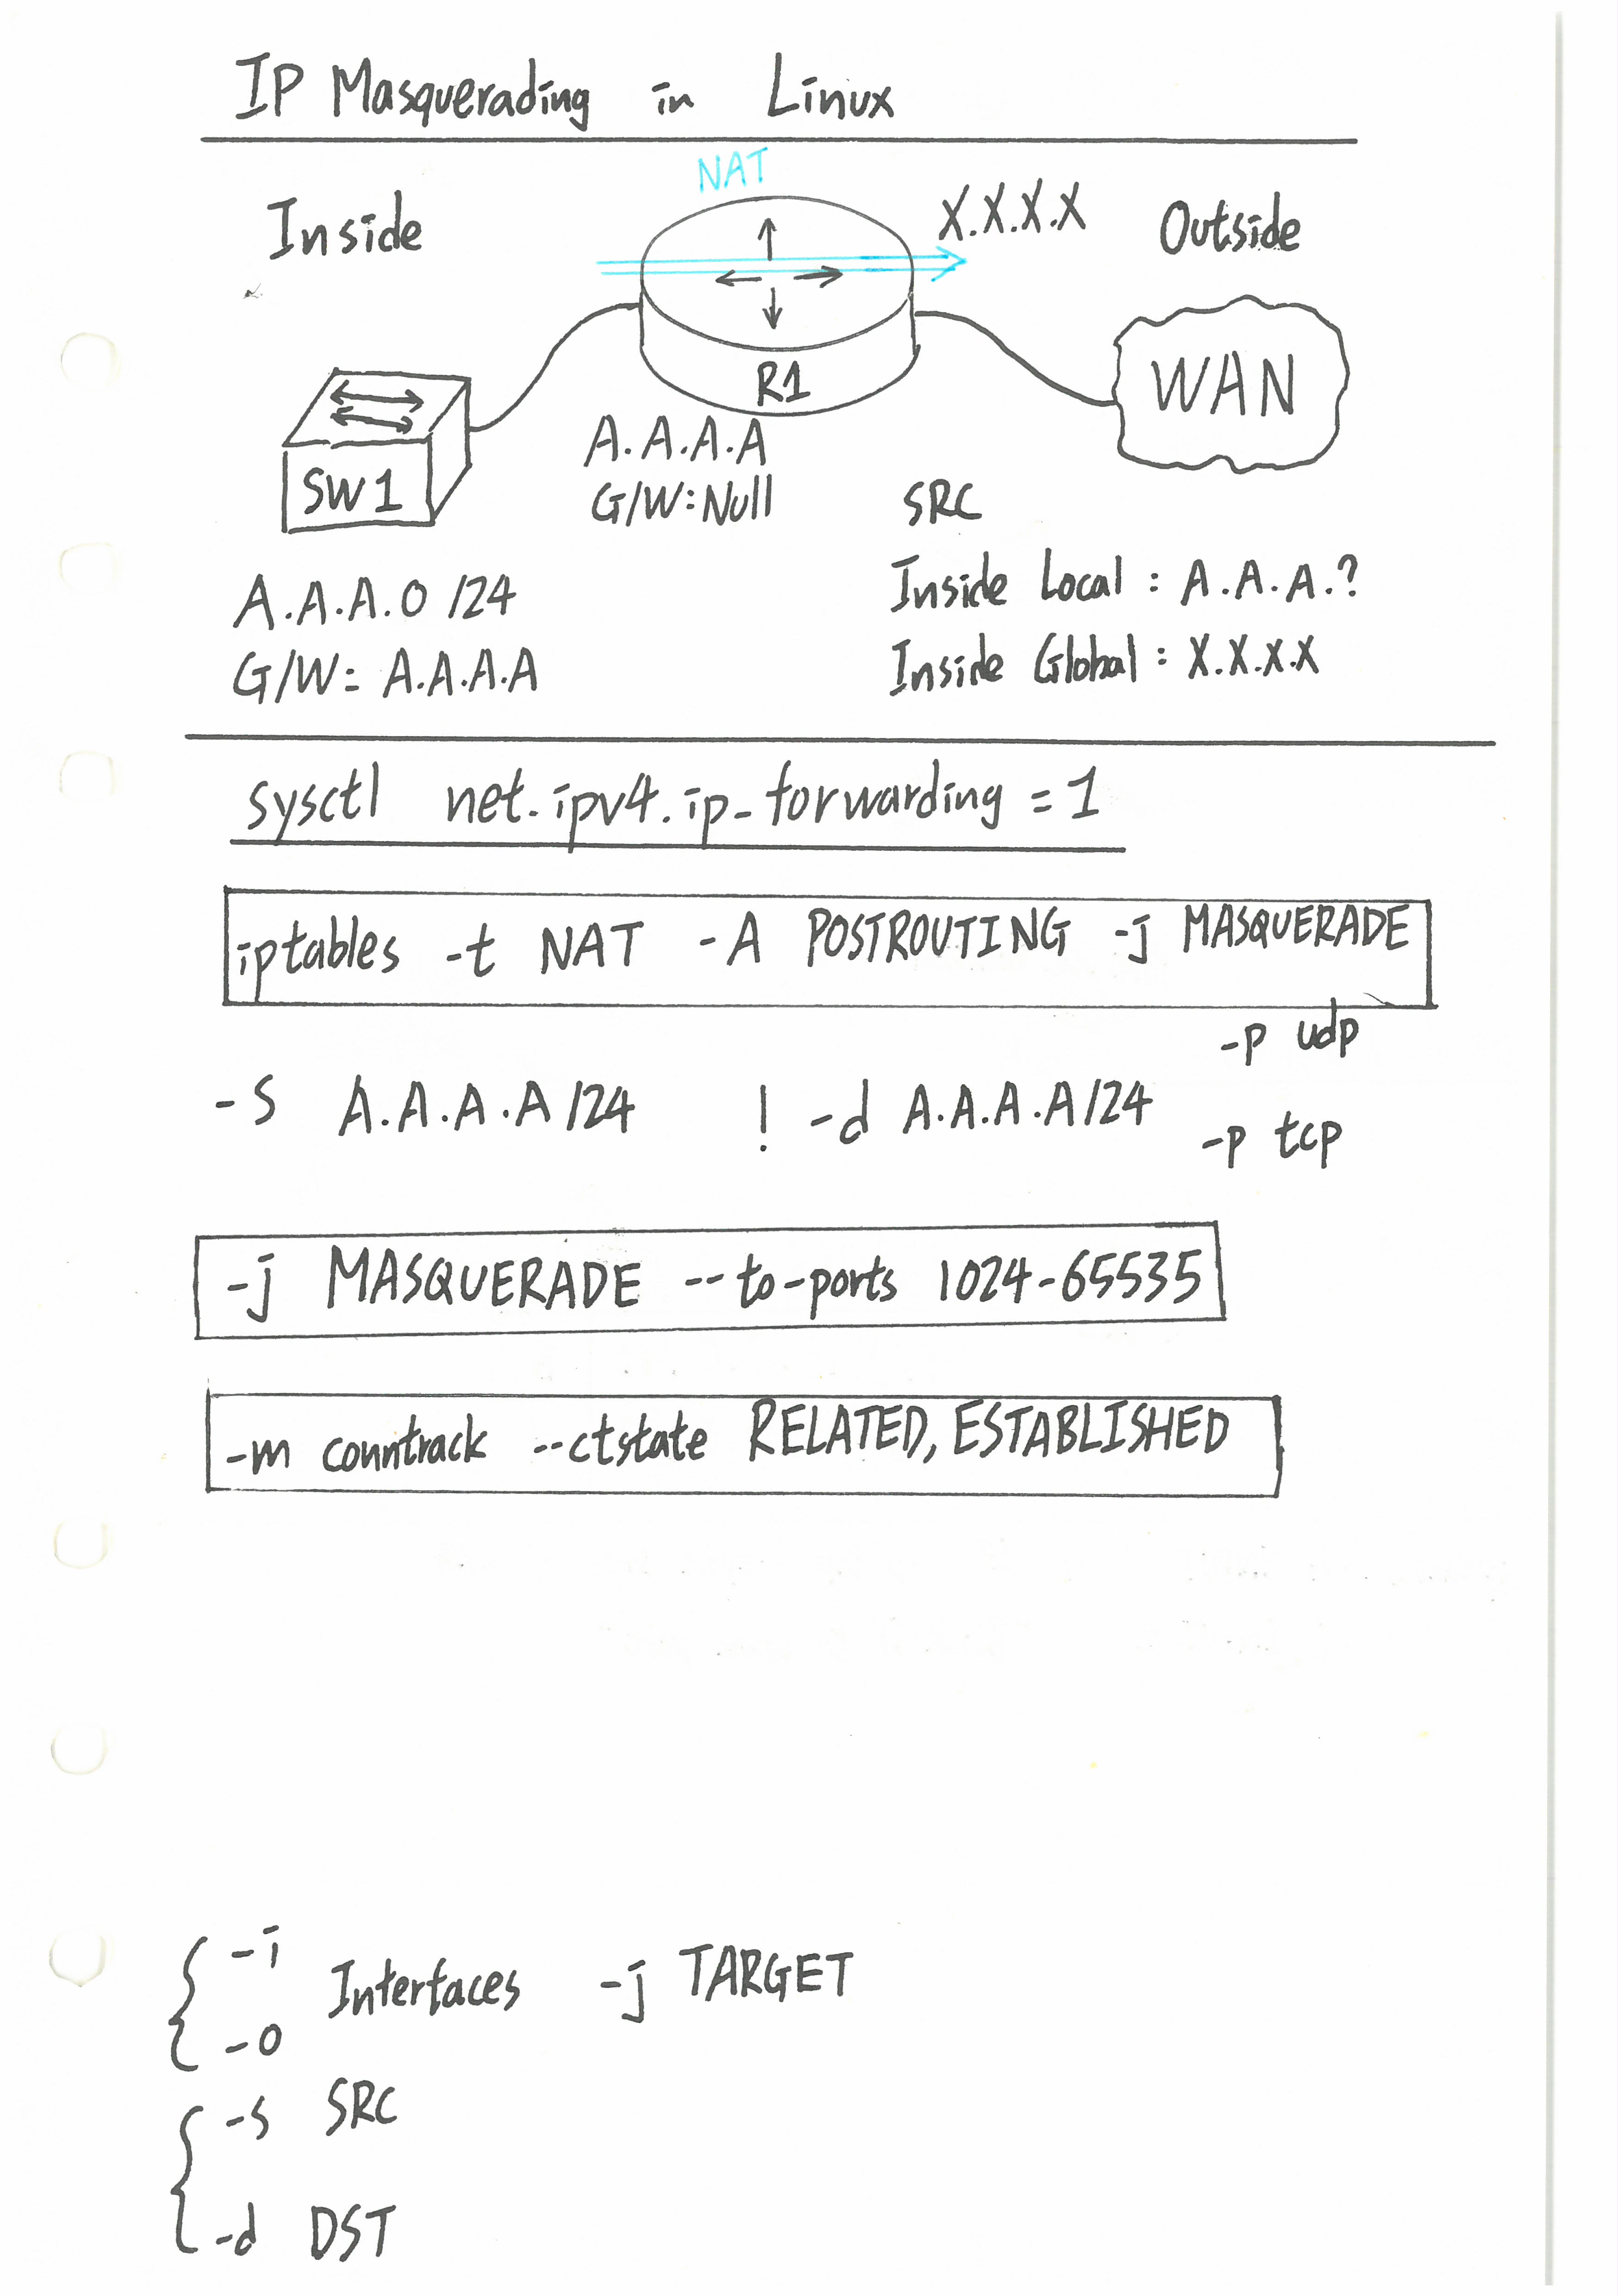 IP Masquerading in Linux
NAT
Inside
X.X.X.X
Outside
R1
WAN
SW1
A.A.A.A
G/W:Null
A.A.A.0 /24
G/W: A.A.A.A
SRC
Inside Local : A.A.A.?
Inside Global : X.X.X.X
sysctl net.ipv4.ip_forwarding = 1
iptables -t NAT -A POSTROUTING -j MASQUERADE
-p udp
-s A.A.A.A /24 ! -d A.A.A.A/24
-p tcp
-j MASQUERADE --to-ports 1024-65535
-m conntrack --ctstate RELATED, ESTABLISHED
-i
Interfaces -j TARGET
-o
-s SRC
-d DST